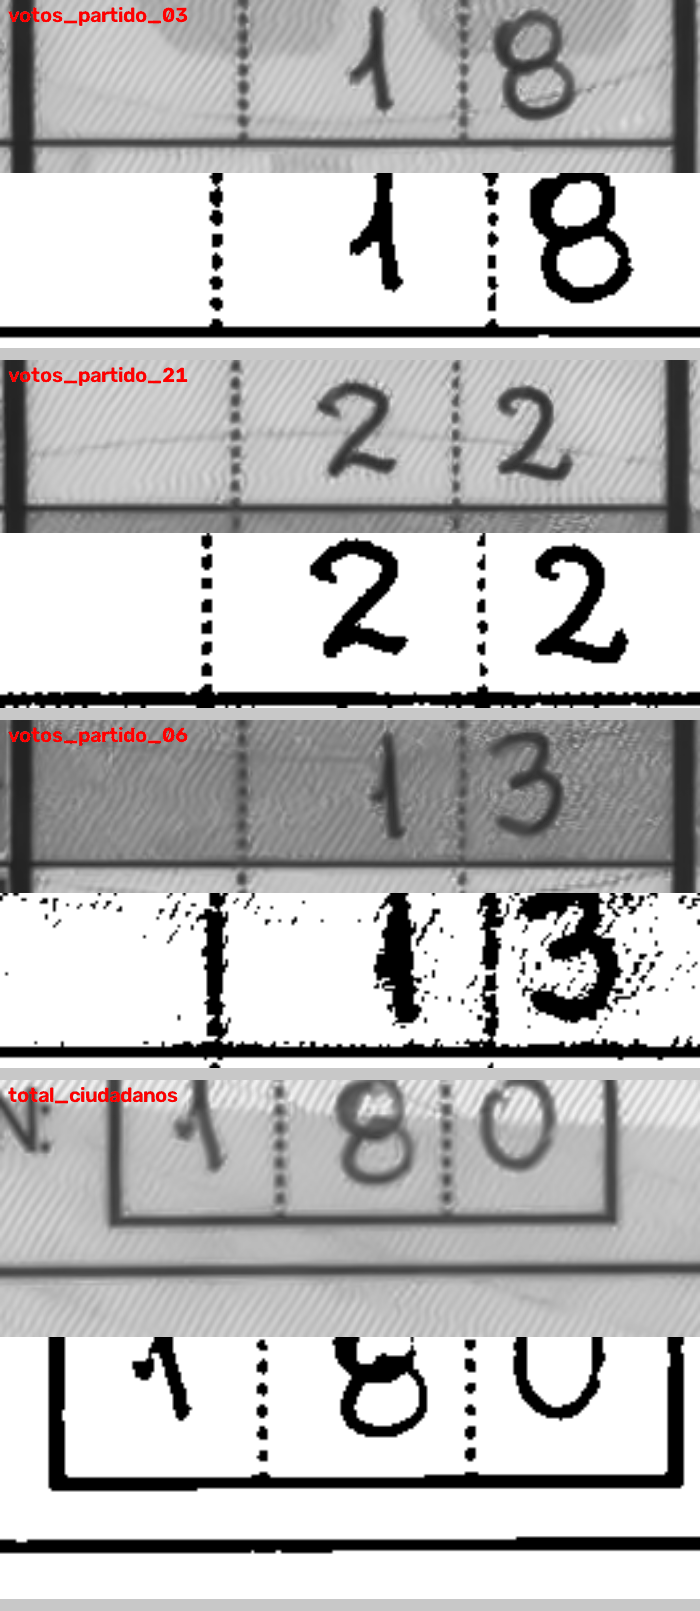 votos_partido_03
1 8
1 8
votos_partido_21
2 2
2 2
votos_partido_06
1 3
1 3
total_ciudadanos
N: 1 8 0
1 8 0